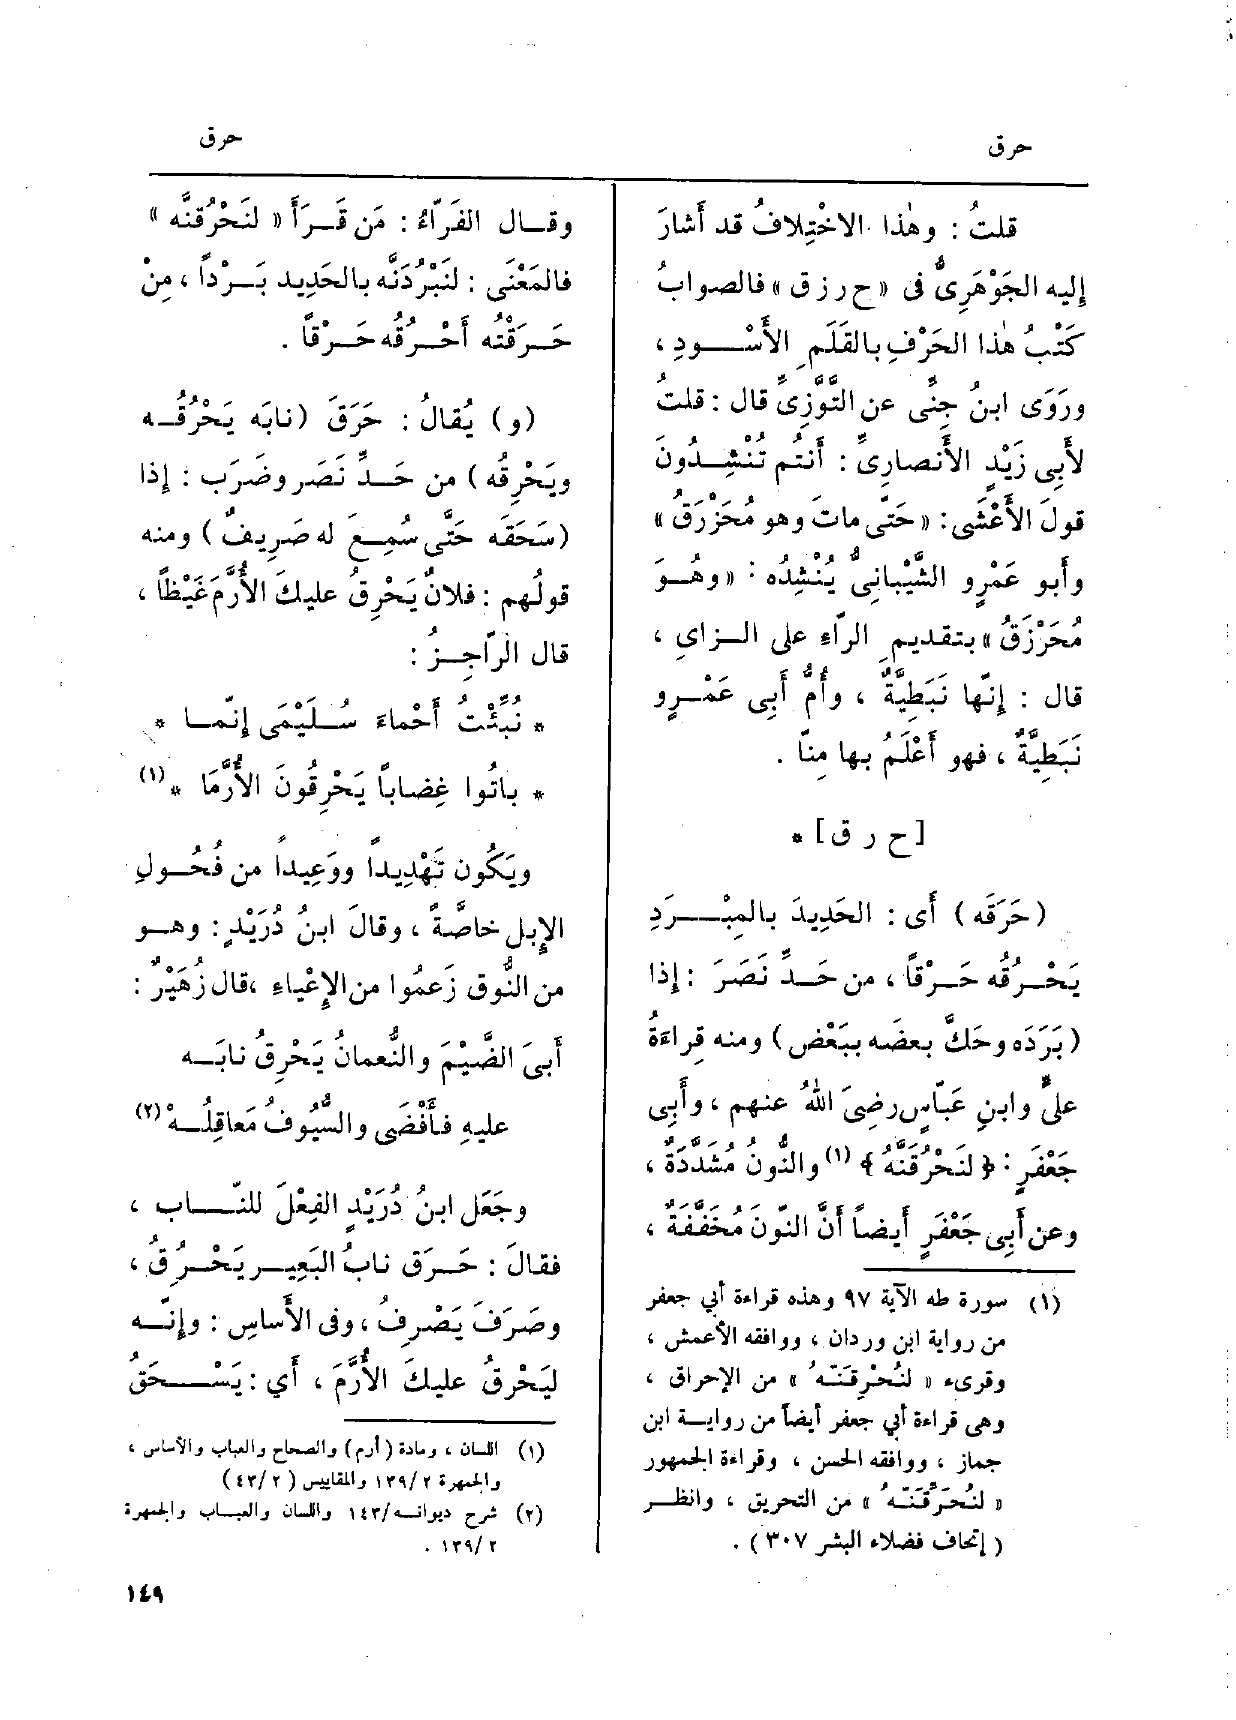 حرق
حرق
قلتُ : وهٰذا الاخْتِلافُ قد أَشارَ
إليه الجَوْهَرِىُّ فى «ح ر ز ق» فالصوابُ
كَتْبُ هٰذا الحَرْفِ بالقَلَمِ الأَسْـودِ ،
ورَوَى ابنُ جِنِّى عن التَّوَّزِىِّ قال : قلتُ
لأَبِى زَيْدٍ الأَنصارِىِّ : أَنتُم تُنْشِـدُونَ
قولَ الأَعْشَى : «حَتَّى ماتَ وهو مُحَزْرَقُ»
وأبو عَمْرٍو الشَّيْبانِىُّ يُنْشِدُه : «وهُـوَ
مُحَرْزَقُ» بتقديمِ الرّاءِ على الـزاىِ ،
قال : إِنّها نَبَطِيَّةٌ ، وأُمُّ أَبِى عَمْـرٍو
نَبَطِيَّةٌ ، فهو أَعْلَمُ بها مِنّا .
[ح ر ق] *
(حَرَقَه) أَى : الحَدِيدَ بالمِبْـرَدِ
يَحْـرُقُه حَـرْقاً ، من حَـدِّ نَصَرَ : إذا
(بَرَدَه وحَكَّ بعضَه ببَعْض) ومنه قِراءَةُ
علىٍّ وابنِ عَبّاسٍ رضِىَ اللهُ عنهم ، وأَبِى
جَعْفَرٍ : ﴿لَنَحْرُقَنَّهُ﴾ (١) والنُّونُ مُشَدَّدَةٌ ،
وعن أَبِى جَعْفَرٍ أَيضاً أَنَّ النّونَ مُخَفَّفَةٌ ،
(١) سورة طه الآية ٩٧ وهذه قراءة أبي جعفر
من رواية ابن وردان ، ووافقه الأعمش ،
وقرىء « لنُحْرِقَنـّهُ » من الإحراق ،
وهى قراءة أبي جعفر أيضاً من روايـة ابن
جماز ، ووافقه الحسن ، وقراءة الجمهور
« لنُحَرِّقَنـّهُ » من التحريق ، وانظـر
( إتحاف فضلاء البشر ٣٠٧ ) .
وقـال الفَرّاءُ : مَن قَـرَأَ « لَنَحْرُقَنَّه »
فالمَعْنَى : لنَبْرُدَنَّه بالحَدِيد بَـرْداً ، مِنْ
حَـرَقْتُه أَحْـرُقُه حَـرْقاً .
(و) يُقالُ : حَرَقَ (نابَه يَحْرُقُـه
ويَحْرِقُه) من حَـدِّ نَصَر وضَرَب : إذا
(سَحَقَه حَتَّى سُمِـعَ له صَرِيفٌ) ومنه
قولُهم : فلانٌ يَحْرِقُ عليكَ الأُرَّمَ غَيْظاً ،
قال الرّاجِـزُ :
* نُبِّئْتُ أَحْماءَ سُـلَيْمَى إِنّمـا *
* باتُوا غِضاباً يَحْرِقُونَ الأُرَّمَا *(١)
ويَكُون تَهْدِيداً ووَعِيداً من فُحُـولِ
الإِبِل خاصَّةً ، وقالَ ابنُ دُرَيْدٍ : وهـو
من النُّوق زَعَمُوا من الإِعْياءِ ، قال زُهَيْرٌ :
أَبىَ الضَّيْمَ والنُّعمانُ يَحْرِقُ نابَـه
عليهِ فأَفْضَى والسُّيُوفُ مَعاقِلُـهْ (٢)
وجَعَل ابنُ دُرَيْدٍ الفِعْلَ للنّـاب ،
فقالَ : حَـرَق نابُ البَعِيـر يَحْـرُقُ ،
وصَرَفَ يَصْرِفُ ، وفى الأَساسِ : وإِنّـه
ليَحْرِقُ عليكَ الأُرَّمَ ، أَي : يَسْـحَقُ
(١) اللسان ، ومادة (أرم) والصحاح والعباب والأساس ،
والجمهرة ٢/ ١٣٩ والمقاييس (٢/ ٤٣)
(٢) شرح ديوانـه/١٤٣ واللسان والعبـاب والجمهرة
٢/ ١٣٩ .
١٤٩